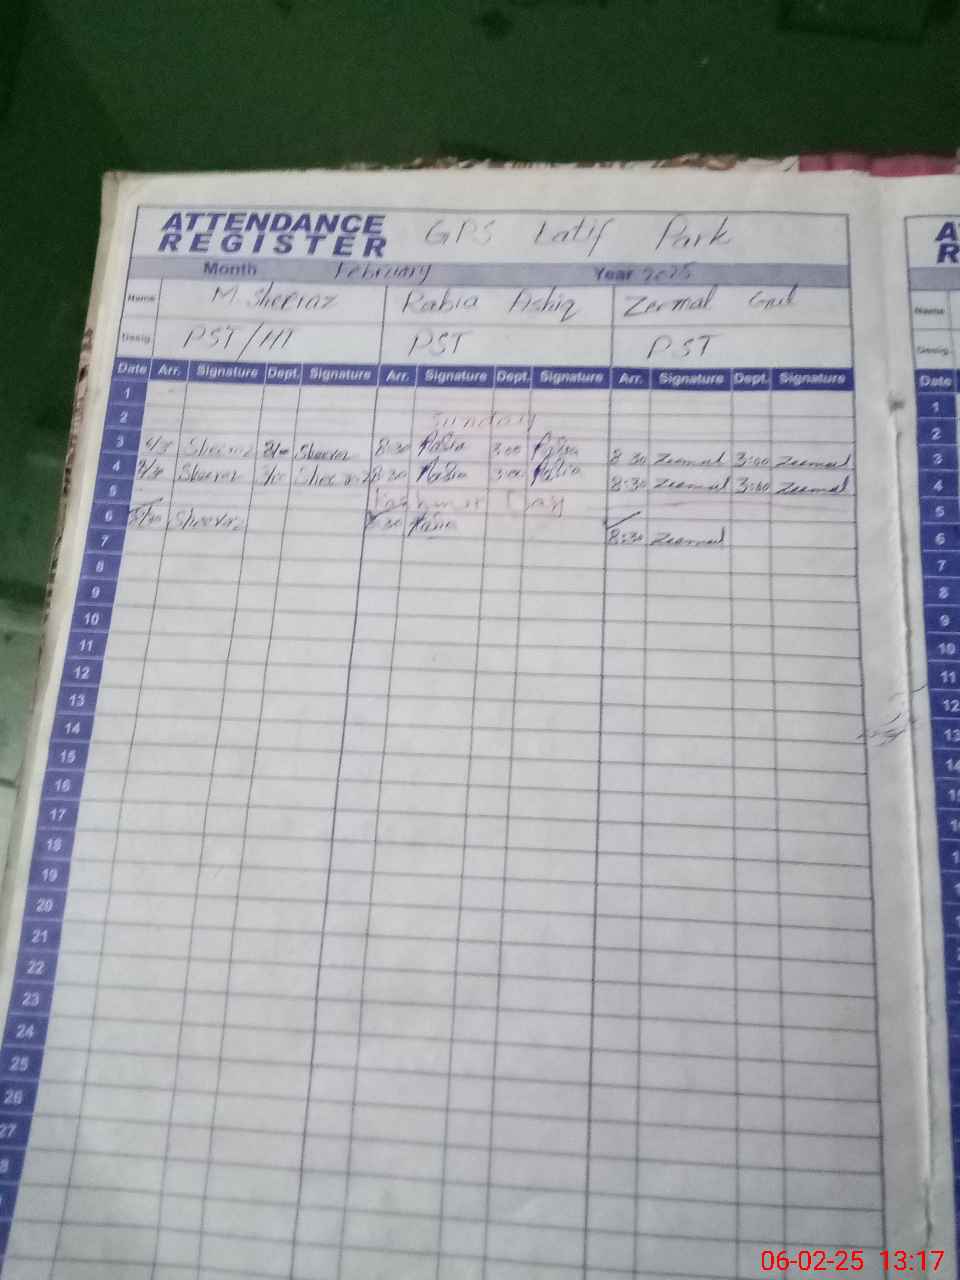 ATTENDANCE REGISTER GPS Latif Park
Month February Year 2025
Name M. Sheeraz Rabia Ashiq Zeemal Gul
Desig. PST/HT PST PST
Date Arr. Signature Dept. Signature Arr. Signature Dept. Signature Arr. Signature Dept. Signature
1
2 Sunday
3 Sheeraz Sheeraz 8:30 Rabia 3:00 Rabia 8:30 Zeemal 3:00 Zeemal
4 Sheeraz Sheeraz 8:30 Rabia 3:00 Rabia 8:30 Zeemal 3:00 Zeemal
5 Kashmir Day
6 Sheeraz 8:30 Rabia 8:30 Zeemal
7
8
9
10
11
12
13
14
15
16
17
18
19
20
21
22
23
24
25
26
27
A
R
Name
Desig.
Date
1
2
3
4
5
6
7
8
9
10
11
12
13
14
06-02-25 13:17